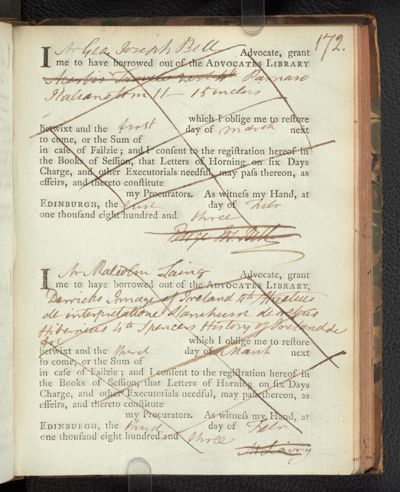 172.
I Mr Geo Joseph Bell Advocate, grant
me to have borrowed out of the ADVOCATES LIBRARY
Parnaso
Italiano tom 11 — 15 inclus
which I oblige me to reſtore
betwixt and the first day of March next
to come, or the Sum of
in caſe of Failzie; and I conſent to the regiſtration hereof in
the Books of Seſſion, that Letters of Horning on ſix Days
Charge, and other Executorials needful, may paſs thereon, as
effeirs, and thereto conſtitute
my Procurators. As witneſs my Hand, at
EDINBURGH, the first day of Febr
one thouſand eight hundred and three
I Mr Malcolm Laing Advocate, grant
me to have borrowed out of the ADVOCATES LIBRARY,
Derricks Image of Ireland
de interpretatione Stanihurst de rebus
Hibernicis 4to Spencers History of Ireland
which I oblige me to reſtore
betwixt and the third day of March next
to come, or the Sum of
in caſe of Failzie; and I conſent to the regiſtration hereof in
the Books of Seſſion, that Letters of Horning on ſix Days
Charge, and other Executorials needful, may paſs thereon, as
effeirs, and thereto conſtitute
my Procurators. As witneſs my Hand, at
EDINBURGH, the third day of Febr
one thouſand eight hundred and three
M Laing